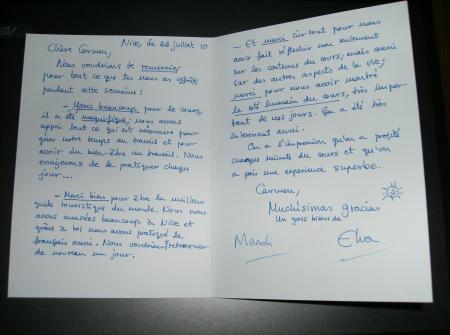 Nice, le 22 juillet 10
Chère Carmen,
Nous voudrions te remercier
pour tout ce que tu nous as offert
pendant cette semaine:
- Merci beaucoup pour le cours,
il a été magnifique; nous avons
appris tout ce qui est nécessaire pour
gérer notre temps au travail et pour
avoir du bien-être au travail. Nous
essaierons de le pratiquer chaque
jour...
- Merci bien pour être la meilleur
guide touristique du monde. Nous nous
avons amusées beaucoup à Nice et
grâce à toi nous avons pratiqué le
français aussi. Nous voudrions retourner
de nouveau un jour.
- Et merci surtout pour nous
avoir fait réfléchir non seulement
sur les contenus du cours, mais aussi
sur des autres aspects de la vie;
merci pour nous avoir montré
le côté humain du cours, très impor-
tant de nos jours. Ça a été très
intéressant aussi.
On a l'impression qu'on a profité
chaque minute du cours et qu'on
a pris une expérience superbe.
Carmen,
Muchísimas gracias
Un gros bisous de
Elva